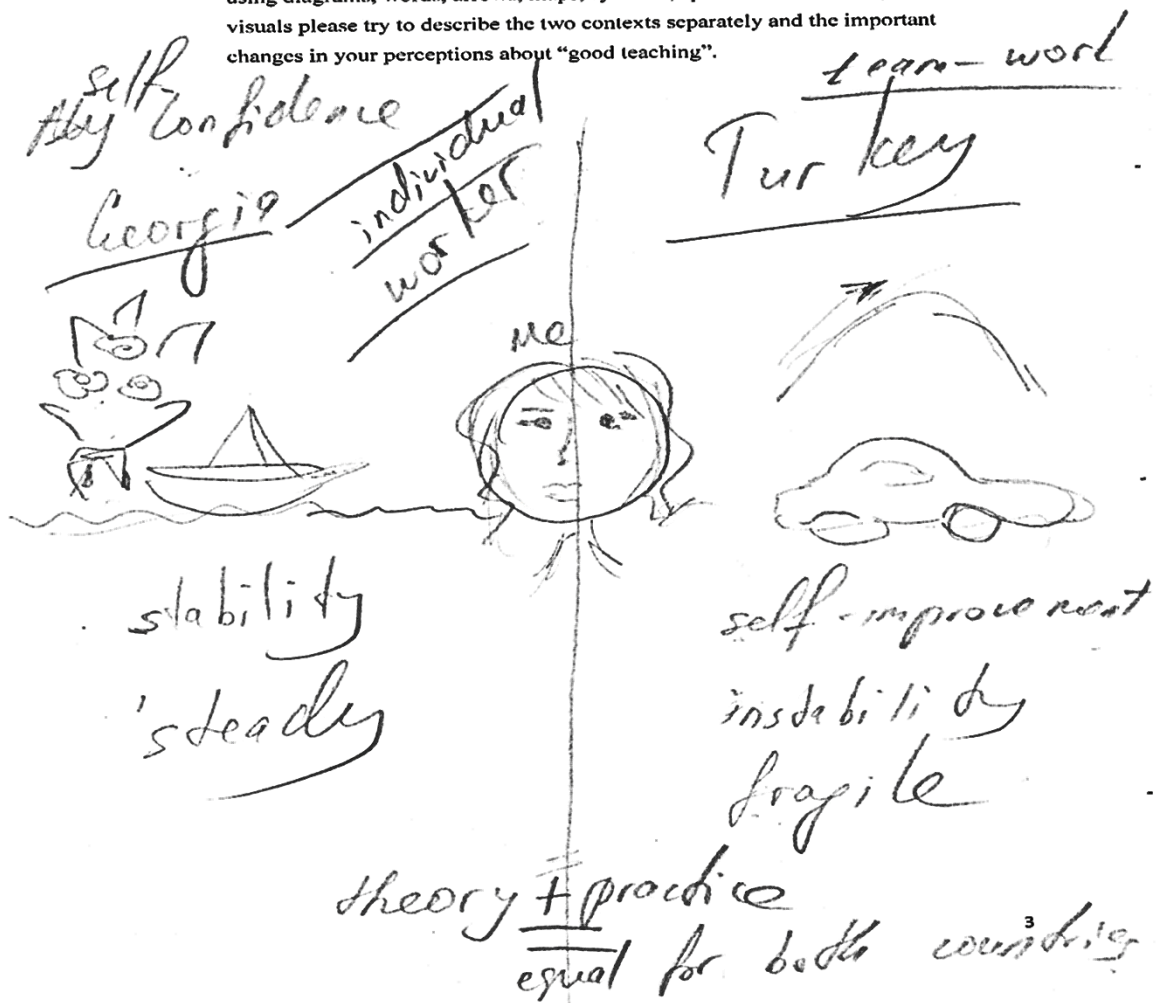 visuals please try to describe the two contexts separately and the important
changes in your perceptions about “good teaching”.
self
confidence
Georgia
individual
worker
team-work
Turkey
Me
stability
'steady
self-improvement
instability
fragile
theory + practice
equal for both countries
3